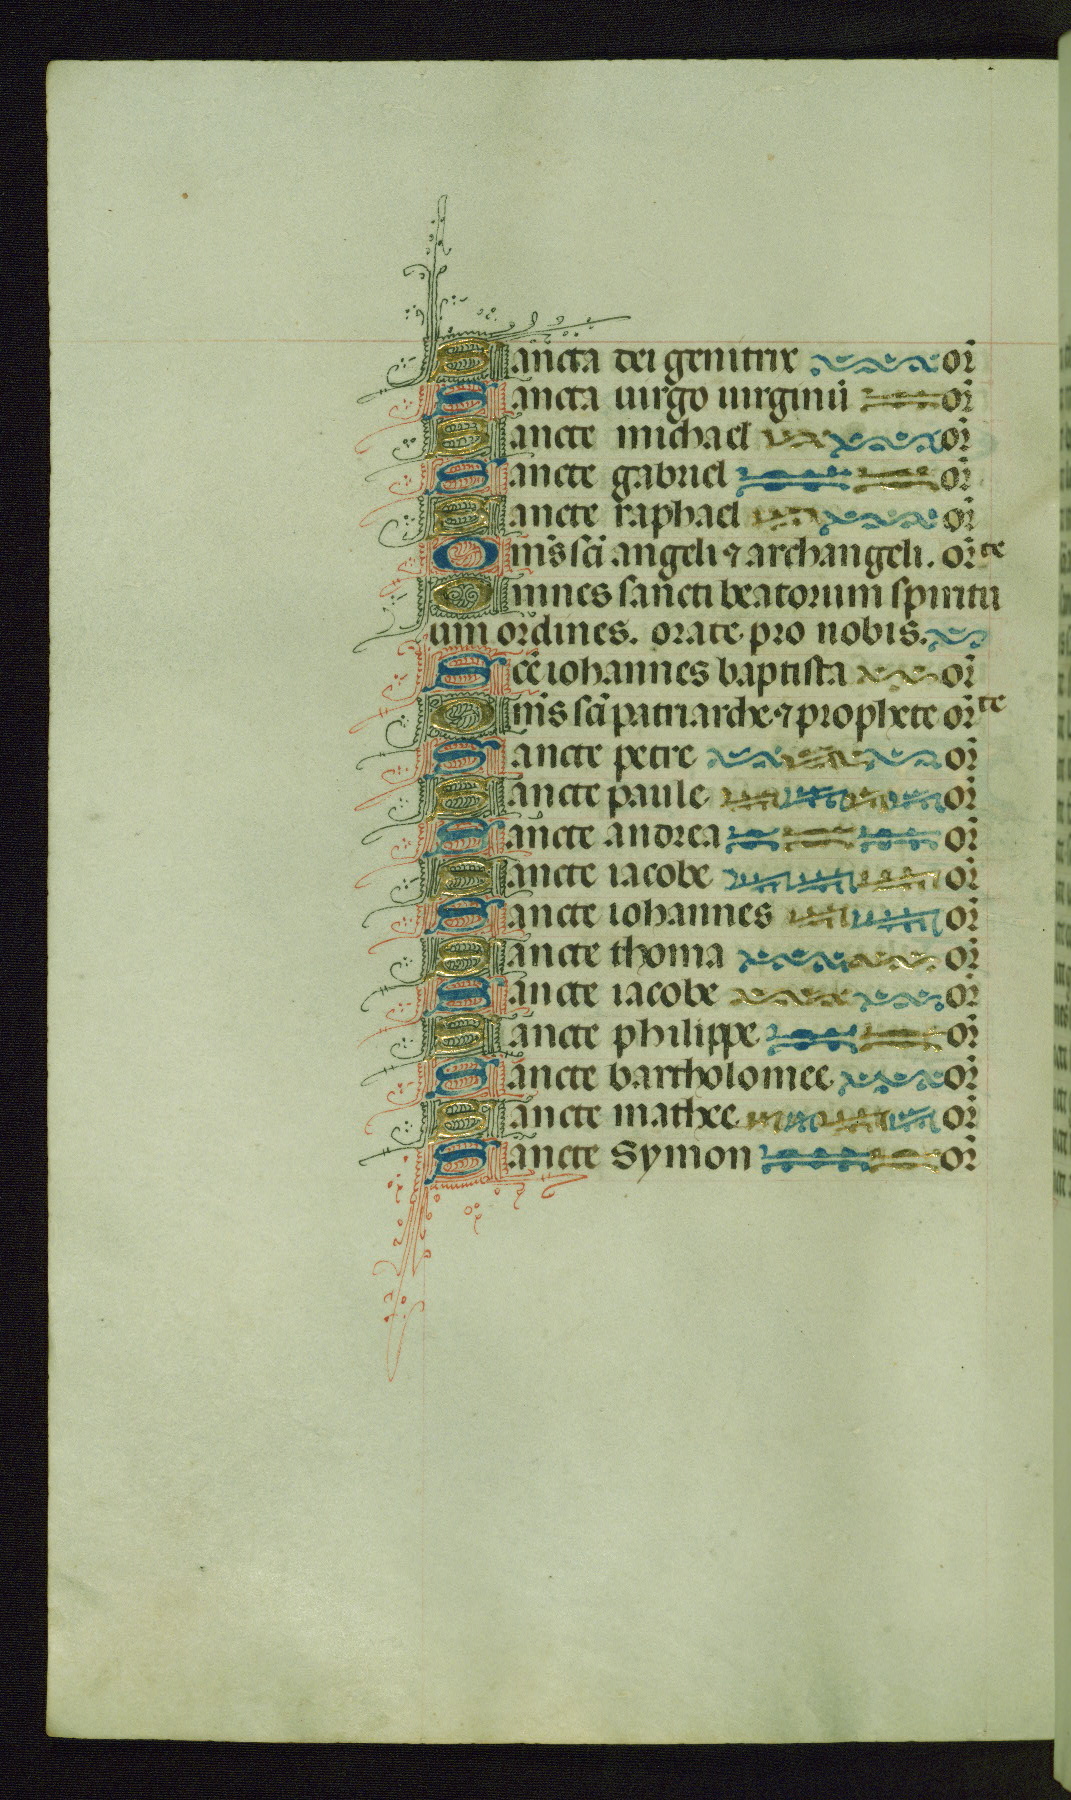 Sancta dei genitrix or̄
Sancta uirgo uirginū or̄
Sancte michael or̄
Sancte gabriel or̄
Sancte raphael or̄
Om̄s sc̄i angeli ⁊ archangeli. or̄te
Omnes sancti beatorum spiritu
um ordines. orate pro nobis.
Sc̄e iohannes baptista or̄
Om̄s sc̄i patriarche ⁊ prophete or̄te
Sancte petre or̄
Sancte paule or̄
Sancte andrea or̄
Sancte iacobe or̄
Sancte iohannes or̄
Sancte thoma or̄
Sancte iacobe or̄
Sancte philippe or̄
Sancte bartholomee or̄
Sancte mathee or̄
Sancte Symon or̄